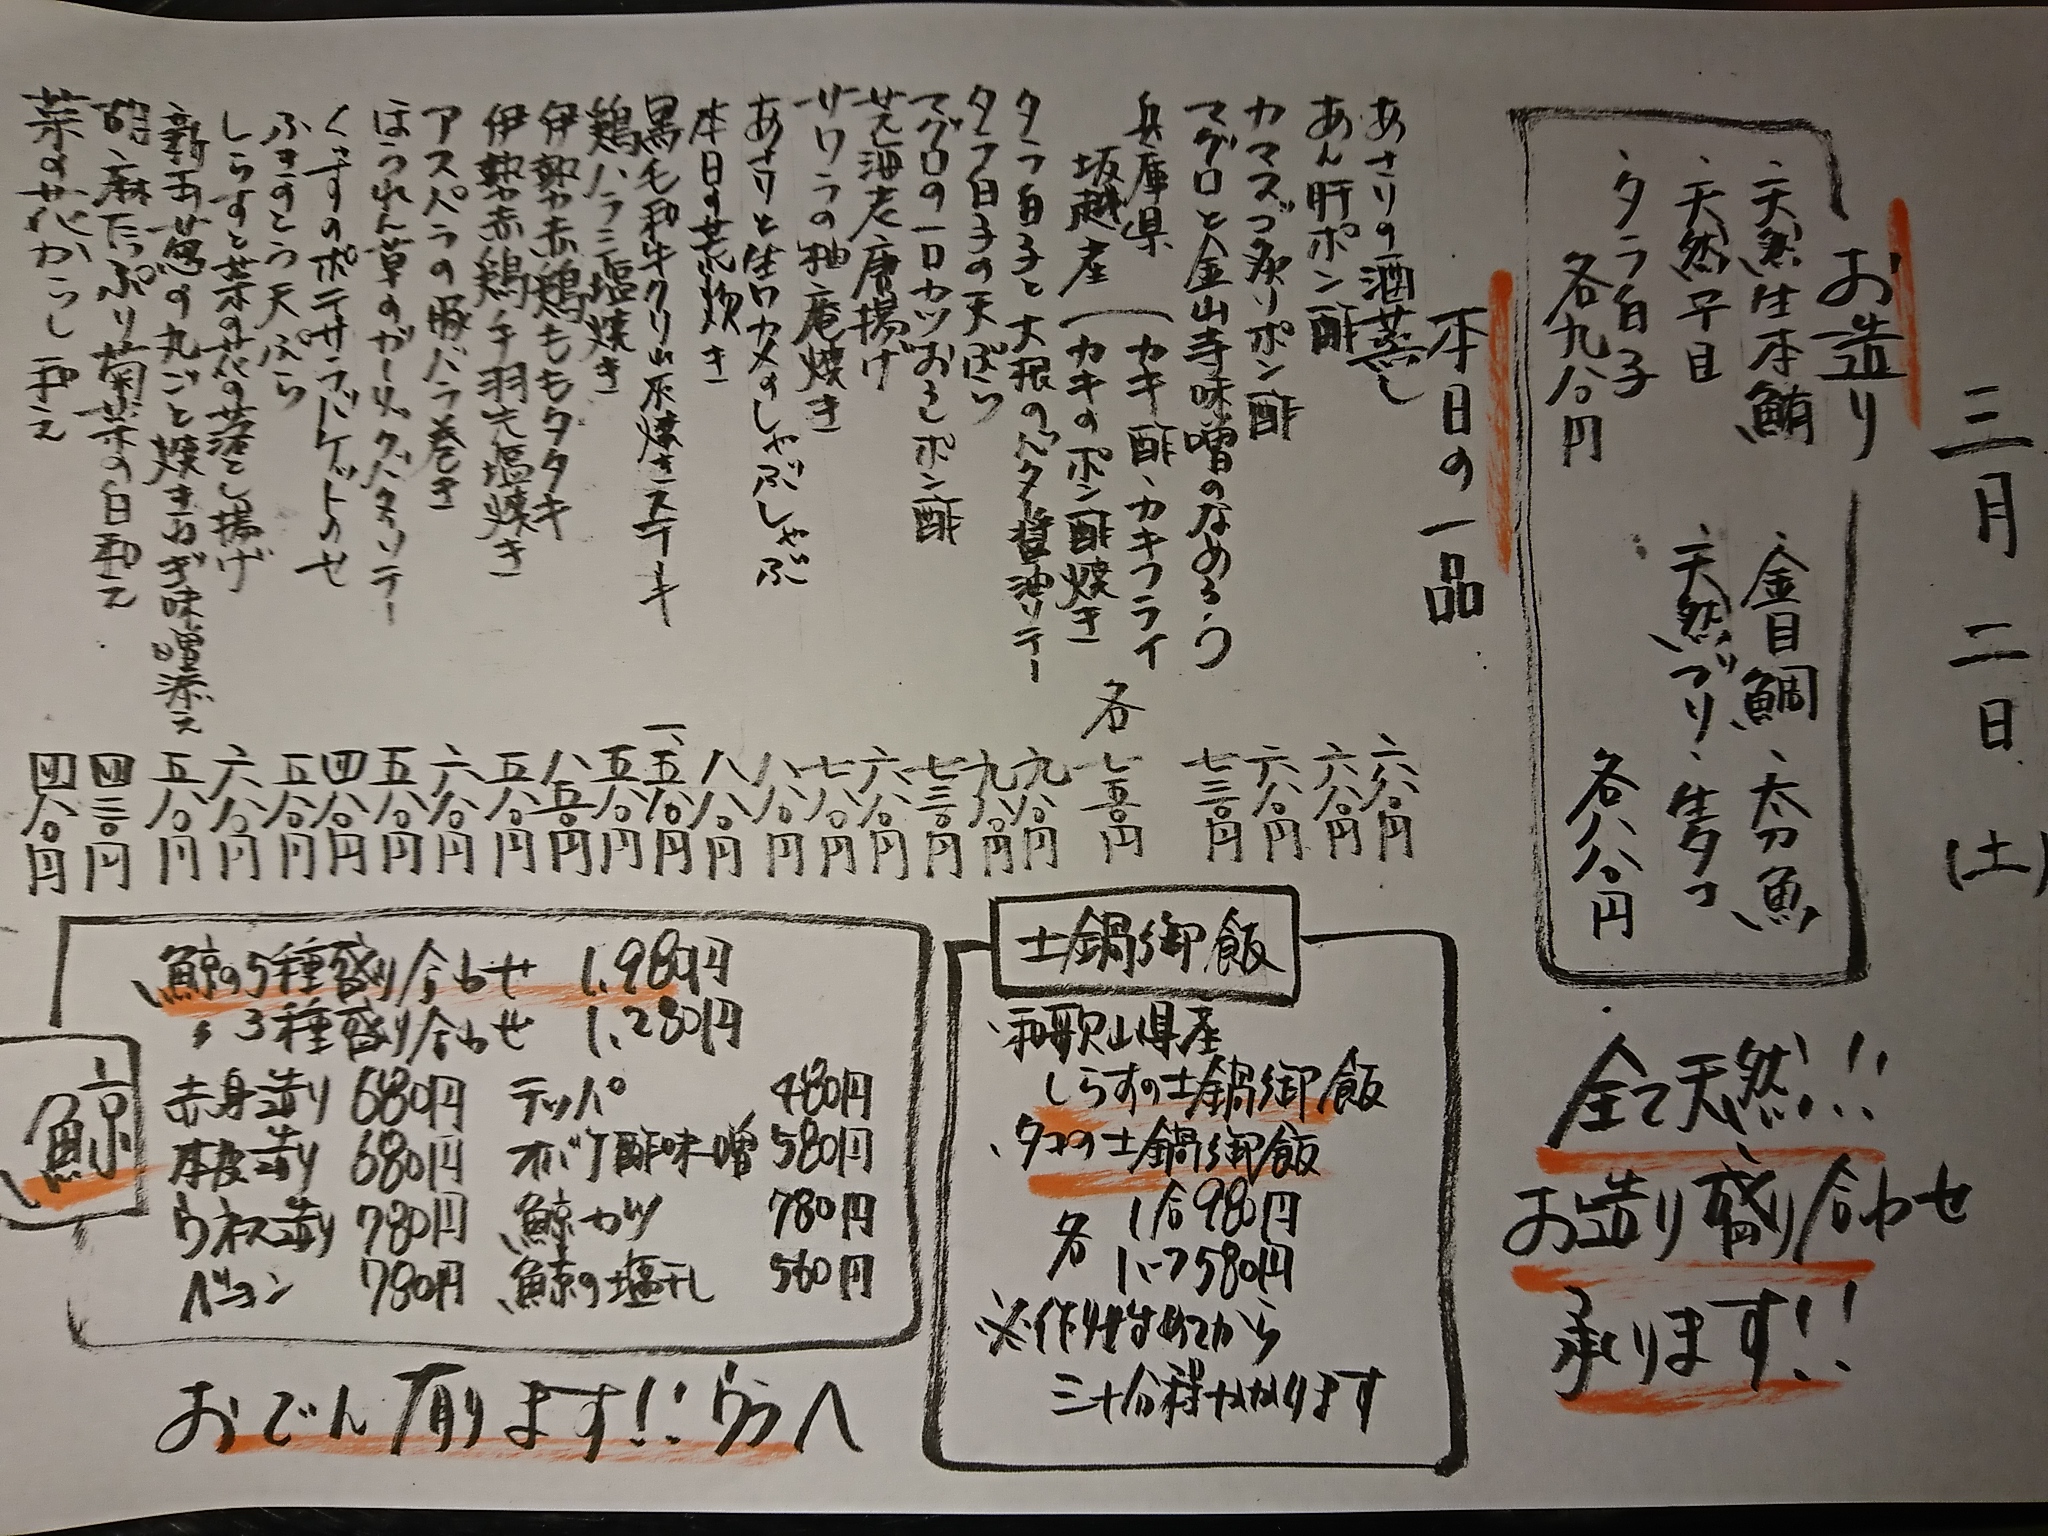 三月二日(土)
お造り
、天然生本鮪 、金目鯛 、太刀魚
、天然平目 、天然ブリ 、生タコ
、タラ白子
各九八〇円 各八八〇円
全て天然!!
お造り盛り合わせ
承ります!!
本日の一品
あさりの酒蒸し 六八〇円
あん肝ポン酢 六八〇円
カマスゴ炙りポン酢 六八〇円
マグロと金山寺味噌のなめろう 七三〇円
兵庫県 (カキ酢、カキフライ
坂越産 (カキのポン酢焼き 各 七五〇円
タラ白子と大根のバター醤油ソテー 九八〇円
タラ白子の天ぷら 九八〇円
マグロの一口カツおろしポン酢 七三〇円
芝海老唐揚げ 六八〇円
サワラの柚庵焼き 七八〇円
あさりと生ワカメのしゃぶしゃぶ 八八〇円
本日の荒炊き 八八〇円
黒毛和牛クリ山灰焼きステーキ 一、五八〇円
鶏ハラミ塩焼き 五八〇円
伊勢赤鶏ももタタキ 八五〇円
伊勢赤鶏手羽先塩焼き 五八〇円
アスパラの豚バラ巻き 六八〇円
ほうれん草のガーリックバターソテー 五八〇円
くずすのポテサラバケットのせ 四八〇円
ふきのとう天ぷら 五八〇円
しらすと菜の花の落とし揚げ 六八〇円
新玉葱の丸ごと焼きねぎ味噌添え 五八〇円
胡麻たっぷり菊菜の白和え 四三〇円
菜の花からし和え 四八〇円
土鍋御飯
、和歌山県産
しらすの土鍋御飯
、タコの土鍋御飯
各 1合980円
1ハーフ580円
※作り始めてから
三十分程かかります
鯨
、鯨の5種盛り合わせ 1,980円
〃 3種盛り合わせ 1,280円
赤身造り 680円 テッパ 480円
本皮造り 680円 オバケ酢味噌 580円
ウネス造り 780円 鯨カツ 780円
ベーコン 780円 鯨の塩干し 560円
おでん有ります!!ウラへ